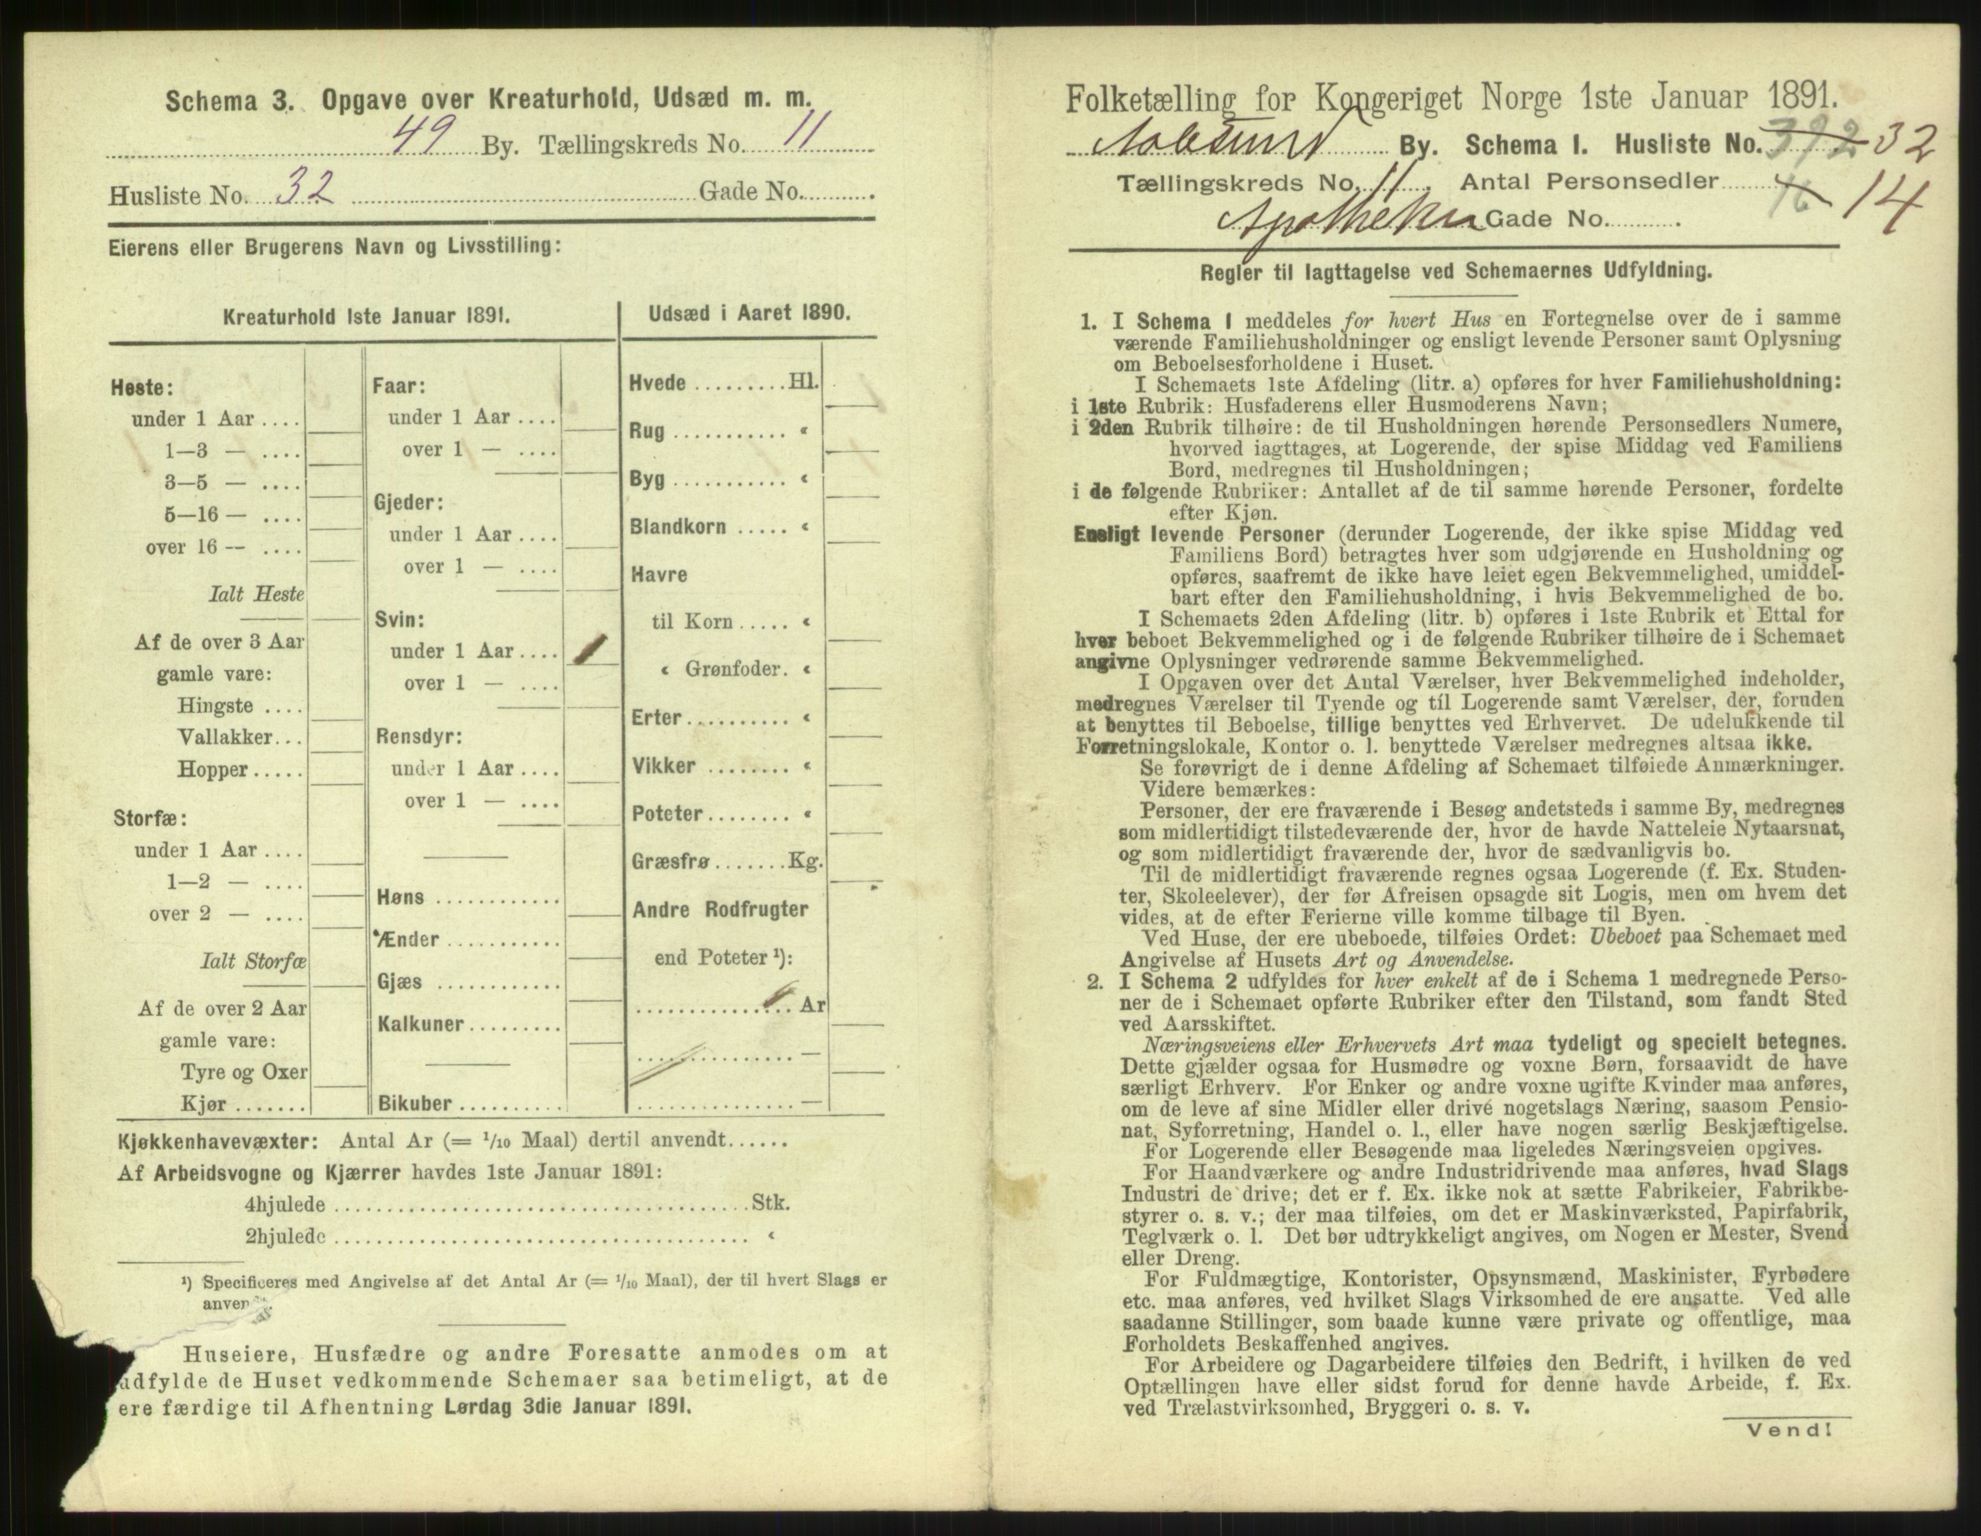 Schema 3. Opgave over Kreaturhold, Udsæd m. m.
49 By. Tællingskreds No. 11
Husliste No. 32 Gade No.
Eierens eller Brugerens Navn og Livsstilling:
Kreaturhold 1ste Januar 1891.
Heste:
under 1 Aar ....
1—3 — ....
3—5 — ....
5—16 — ....
over 16 — ....
Ialt Heste
Af de over 3 Aar
gamle vare:
Hingste ....
Vallakker...
Hopper.....
Storfæ:
under 1 Aar ....
1—2 — ....
over 2 — ....
Ialt Storfæ
Af de over 2 Aar
gamle vare:
Tyre og Oxer
Kjør .......
Faar:
under 1 Aar ....
over 1 — ....
Gjeder:
under 1 Aar ....
over 1 — ....
Svin:
under 1 Aar .... 1
over 1 — ....
Rensdyr:
under 1 Aar ....
over 1 — ....
Høns ............
Ænder ...........
Gjæs ............
Kalkuner.........
Bikuber..........
Udsæd i Aaret 1890.
Hvede .........Hl.
Rug ........... “
Byg ........... “
Blandkorn ..... “
Havre
til Korn ..... “
“ Grønfoder. “
Erter.......... “
Vikker ........ “
Poteter........ “
Græsfrø .......Kg.
Andre Rodfrugter
end Poteter ¹):
............... Ar
............... —
............... —
Kjøkkenhavevæxter: Antal Ar (= 1/10 Maal) dertil anvendt......
Af Arbeidsvogne og Kjærrer havdes 1ste Januar 1891:
4hjulede ......................................Stk.
2hjulede ...................................... “
¹) Specificeres med Angivelse af det Antal Ar (= 1/10 Maal), der til hvert Slags er
anven
Huseiere, Husfædre og andre Foresatte anmodes om at
udfylde de Huset vedkommende Schemaer saa betimeligt, at de
ere færdige til Afhentning Lørdag 3die Januar 1891.
Folketælling for Kongeriget Norge 1ste Januar 1891.
Aalesund By. Schema 1. Husliste No. 392 32
Tællingskreds No. 11. Antal Personsedler 16 14
Apotheker Gade No.
Regler til Iagttagelse ved Schemaernes Udfyldning.
1. I Schema 1 meddeles for hvert Hus en Fortegnelse over de i samme
værende Familiehusholdninger og ensligt levende Personer samt Oplysning
om Beboelsesforholdene i Huset.
I Schemaets 1ste Afdeling (litr. a) opføres for hver Familiehusholdning:
i 1ste Rubrik: Husfaderens eller Husmoderens Navn;
i 2den Rubrik tilhøire: de til Husholdningen hørende Personsedlers Numere,
hvorved iagttages, at Logerende, der spise Middag ved Familiens
Bord, medregnes til Husholdningen;
i de følgende Rubriker: Antallet af de til samme hørende Personer, fordelte
efter Kjøn.
Ensligt levende Personer (derunder Logerende, der ikke spise Middag ved
Familiens Bord) betragtes hver som udgjørende en Husholdning og
opføres, saafremt de ikke have leiet egen Bekvemmelighed, umiddel-
bart efter den Familiehusholdning, i hvis Bekvemmelighed de bo.
I Schemaets 2den Afdeling (litr. b) opføres i 1ste Rubrik et Ettal for
hver beboet Bekvemmelighed og i de følgende Rubriker tilhøire de i Schemaet
angivne Oplysninger vedrørende samme Bekvemmelighed.
I Opgaven over det Antal Værelser, hver Bekvemmelighed indeholder,
medregnes Værelser til Tyende og til Logerende samt Værelser, der, foruden
at benyttes til Beboelse, tillige benyttes ved Erhvervet. De udelukkende til
Forretningslokale, Kontor o. l. benyttede Værelser medregnes altsaa ikke.
Se forøvrigt de i denne Afdeling af Schemaet tilføiede Anmærkninger.
Videre bemærkes:
Personer, der ere fraværende i Besøg andetsteds i samme By, medregnes
som midlertidigt tilstedeværende der, hvor de havde Natteleie Nytaarsnat,
og som midlertidigt fraværende der, hvor de sædvanligvis bo.
Til de midlertidigt fraværende regnes ogsaa Logerende (f. Ex. Studen-
ter, Skoleelever), der før Afreisen opsagde sit Logis, men om hvem det
vides, at de efter Ferierne ville komme tilbage til Byen.
Ved Huse, der ere ubeboede, tilføies Ordet: Ubeboet paa Schemaet med
Angivelse af Husets Art og Anvendelse.
2. I Schema 2 udfyldes for hver enkelt af de i Schema 1 medregnede Perso-
ner de i Schemaet opførte Rubriker efter den Tilstand, som fandt Sted
ved Aarsskiftet.
Næringsveiens eller Erhvervets Art maa tydeligt og specielt betegnes.
Dette gjælder ogsaa for Husmødre og voxne Børn, forsaavidt de have
særligt Erhverv. For Enker og andre voxne ugifte Kvinder maa anføres,
om de leve af sine Midler eller drive nogetslags Næring, saasom Pensio-
nat, Syforretning, Handel o. l., eller have nogen særlig Beskjæftigelse.
For Logerende eller Besøgende maa ligeledes Næringsveien opgives.
For Haandværkere og andre Industridrivende maa anføres, hvad Slags
Industri de drive; det er f. Ex. ikke nok at sætte Fabrikeier, Fabrikbe-
styrer o. s. v.; der maa tilføies, om det er Maskinværksted, Papirfabrik,
Teglværk o. l. Det bør udtrykkeligt angives, om Nogen er Mester, Svend
eller Dreng.
For Fuldmægtige, Kontorister, Opsynsmænd, Maskinister, Fyrbødere
etc. maa anføres, ved hvilket Slags Virksomhed de ere ansatte. Ved alle
saadanne Stillinger, som baade kunne være private og offentlige, maa
Forholdets Beskaffenhed angives.
For Arbeidere og Dagarbeidere tilføies den Bedrift, i hvilken de ved
Optællingen have eller sidst forud for denne havde Arbeide, f. Ex.
ved Trælastvirksomhed, Bryggeri o. s. v.
Vend!